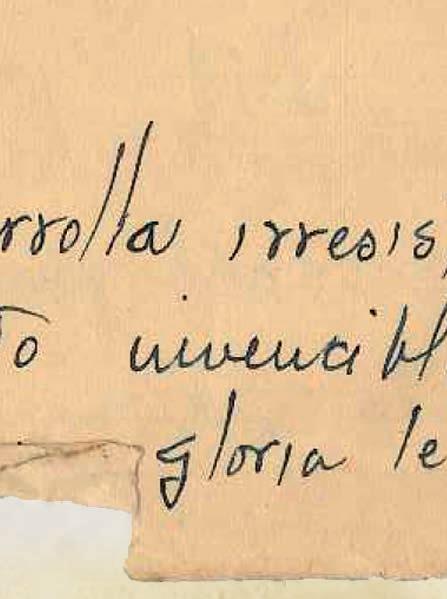 rrolla irresis
to invencibl
gloria le